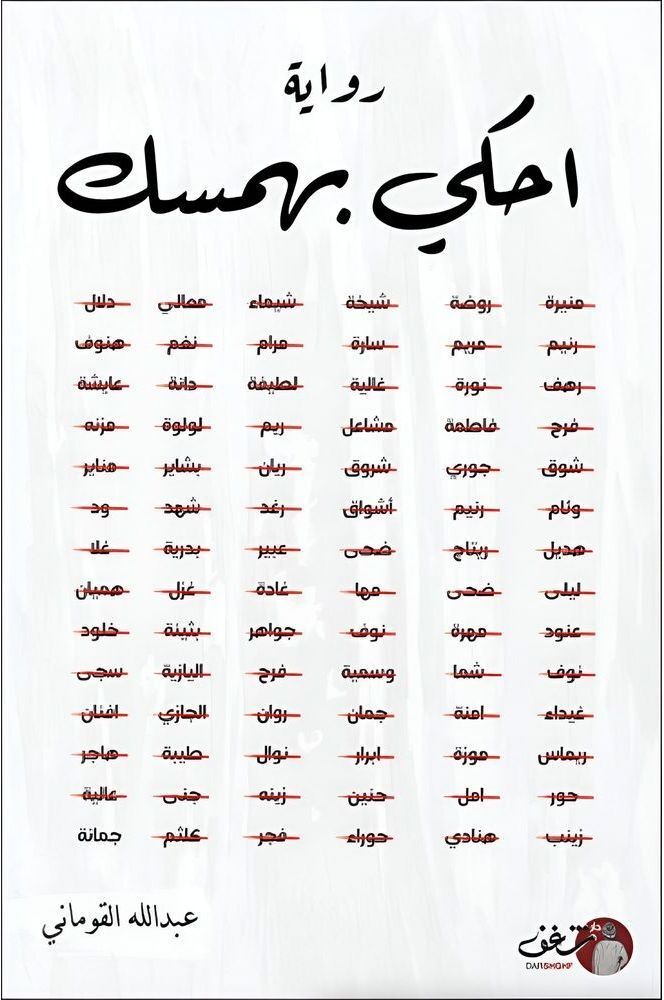 رواية
احكي بهمسك
منيرة روضة شيخة شيماء معالي دلال
رنيم مريم سارة مرام نغم هنوف
رهف نورة غالية لطيفة دانة عايشة
فرح فاطمة مشاعل ريم لولوة مزنه
شوق جوري شروق ريان بشاير مناير
وئام رنيم أشواق رغد شهد ود
هديل ريتاج ضحى عبير بدرية غلا
ليلى ضحى مها غادة غزل هميان
عنود مهرة نوف جواهر بثينة خلود
نوف شما وسمية فرح اليازية سجى
غيداء امنة جمان روان الجازي افنان
ريماس موزة ابرار نوال طيبة هاجر
حور امل حنين زينه جنى عالية
زينب هنادي حوراء فجر كلثم جمانة
عبدالله القوماني
شغف